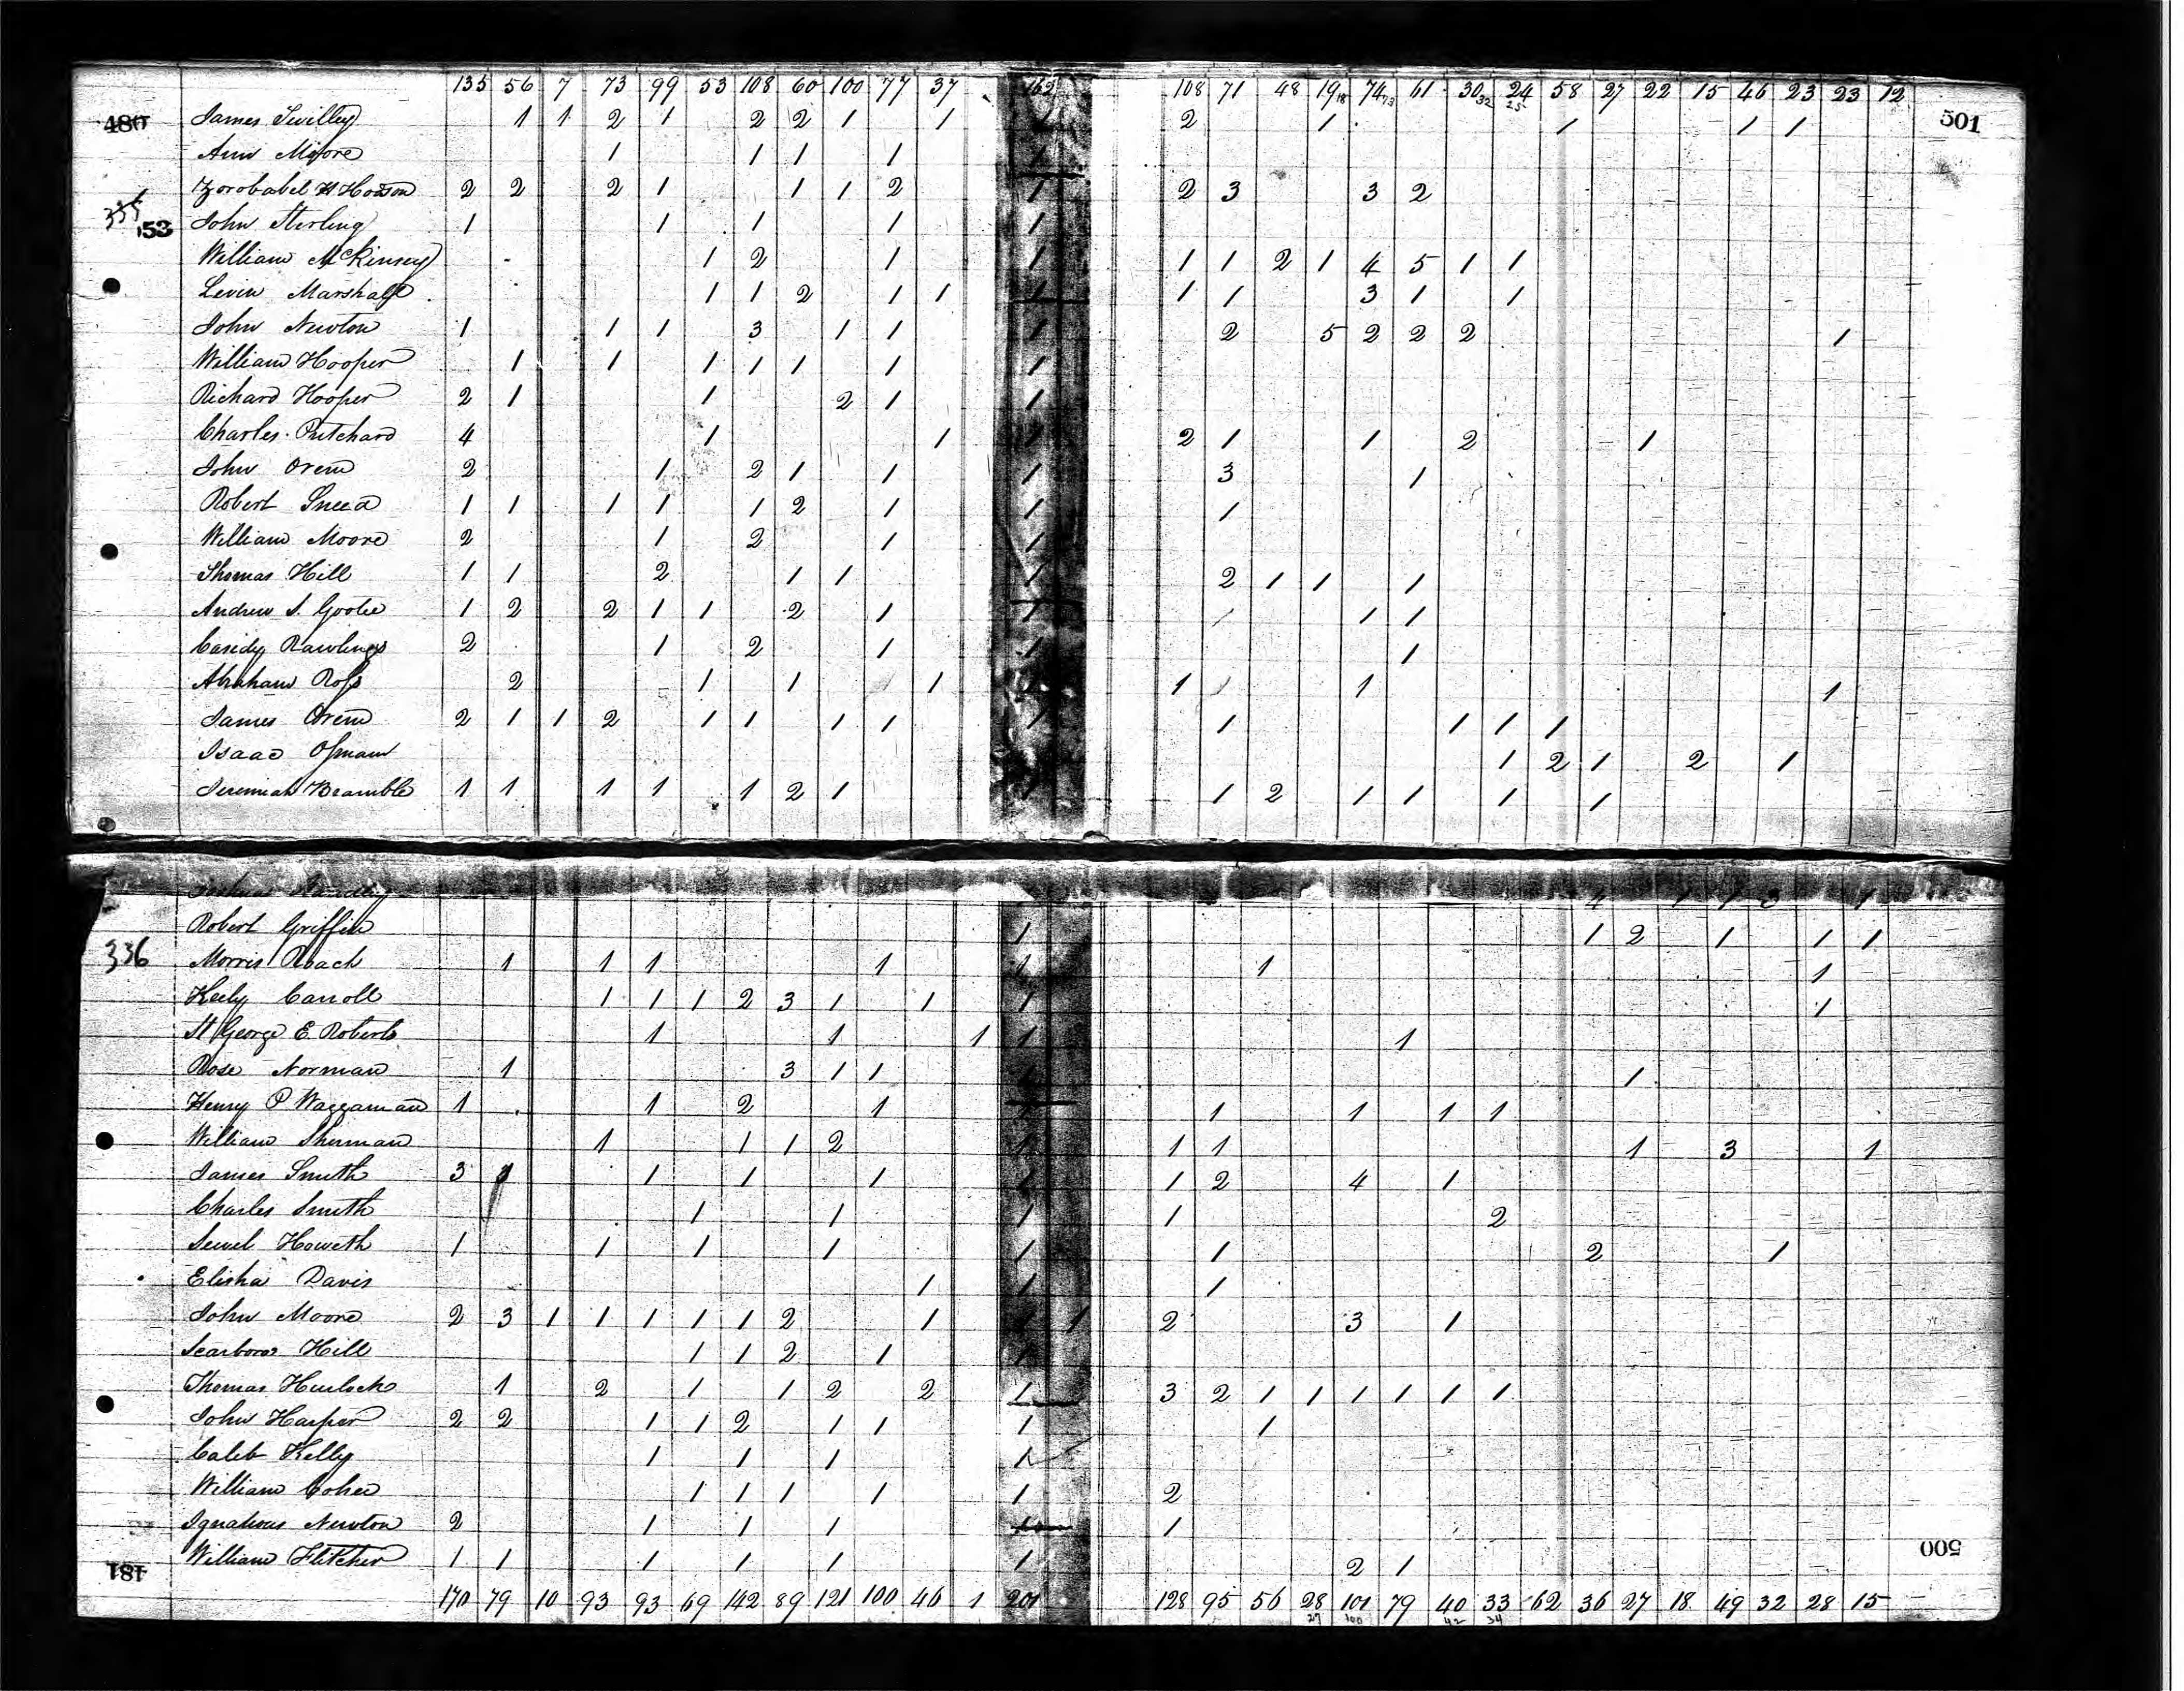 135 56 7 73 99 53 108 60 100 77 37 162 108 71 48 19 18 74 73 61 30 32 24 25 58 27 22 15 46 23 23 12
480 James 1 1 2 1 2 2 1 1 1 2 1 1 1 1 501
Ann Moore 1 1 1 1 1
Zorobabel 2 2 2 1 1 1 2 1 2 3 3 2
335 153 John Sterling 1 1 1 1 1
William McKinsey 1 2 1 1 1 1 2 1 4 5 1 1
Levin Marshall 1 1 2 1 1 1 1 1 3 1 1
John Newton 1 1 1 3 1 1 1 2 5 2 2 2 1
William Hooper 1 1 1 1 1 1 1
Richard Hooper 2 1 1 2 1 1
Charles Pritchard 4 1 1 1 2 1 1 2 1
John Orem 2 1 2 1 1 1 3 1
Robert Sneed 1 1 1 1 1 2 1 1 1
William Moore 2 1 2 1 1
Thomas Hill 1 1 2 1 1 1 2 1 1 1
Andrew S. 1 2 2 1 1 2 1 1 1 1 1
Casidy Rawlings 2 1 2 1 1 1
Abraham Ross 2 1 1 1 1 1 1 1 1
James Orem 2 1 1 2 1 1 1 1 1 1 1 1 1
Isaac 1 2 1 2 1
Jeremiah Bramble 1 1 1 1 1 2 1 1 1 2 1 1 1 1
Robert Griffin 1 1 2 1 1 1
336 Morris Roach 1 1 1 1 1 1 1
Keely Carroll 1 1 1 2 3 1 1 1 1
St George E. Roberts 1 1 1 1 1
Rose Norman 1 3 1 1 1 1
Henry P Waggaman 1 1 2 1 1 1 1 1 1
William Sherman 1 1 1 2 1 1 1 1 3 1
James Smith 3 1 1 1 1 1 2 4 1
Charles Smith 1 1 1 1 2
Sewel Howeth 1 1 1 1 1 1 2 1
Elisha Davis 1 1 1
John Moore 2 3 1 1 1 1 1 2 1 1 1 2 3 1
Hill 1 1 2 1 1
Thomas Hurlock 1 2 1 1 2 2 1 3 2 1 1 1 1 1 1
John Harper 2 2 1 1 2 1 1 1 1
Caleb Kelly 1 1 1 1
William 1 1 1 1 1 2
Ignatious Newton 2 1 1 1 1 1
181 William Fletcher 1 1 1 1 1 1 2 1 500
170 79 10 93 93 69 142 89 121 100 46 1 201 128 95 56 28 27 101 100 79 40 42 33 34 62 36 27 18 49 32 28 15